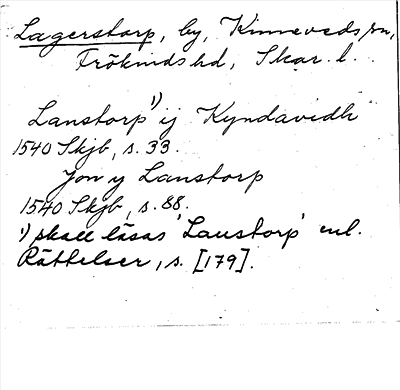 Lagerstorp, by, Kinneveds sn,
Frökinds hd, Skar. l.
Lanstorp ¹) ij Kyndavedh
1540 Skjb, s. 33.
Jon y Lanstorp
1540 Skjb, s. 88.
¹) skall läsas 'Laustorp' enl.
Rättelser, s. [179].